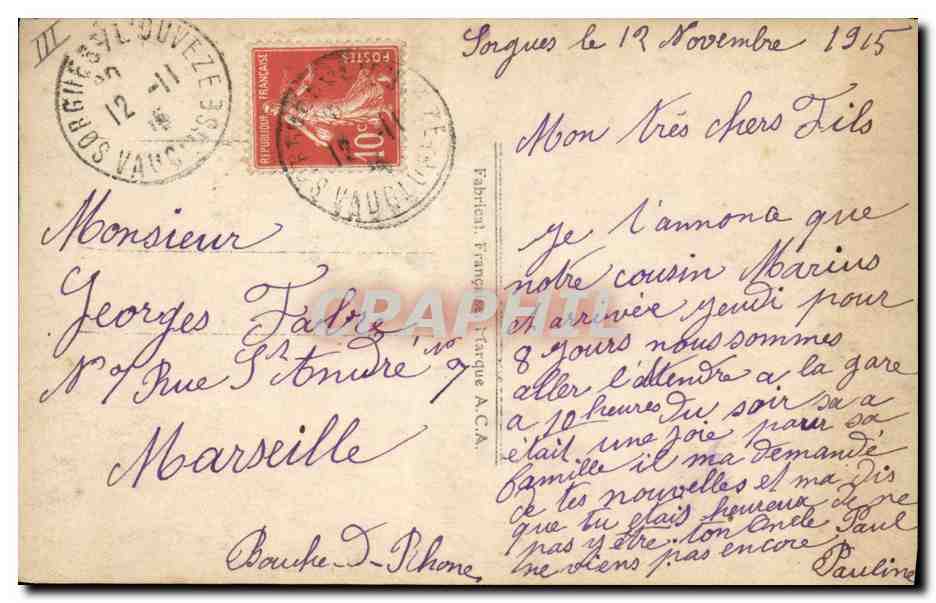 III
SORGUES S/L'OUVEZE
12 -11
VAUCLUSE
REPUBLIQUE FRANÇAISE
POSTES
10c
12 -11
VAUCLUSE
Sorgues le 12 Novembre 1915
Mon très chers Fils
Je t'annona que
notre cousin Marius
et arrivée jeudi pour
8 jours nous sommes
aller l'attendre a la gare
a 10 heures du soir sa a
était une joie pour sa
famille il ma demandé
de tes nouvelles et ma dis
que tu etais heureux de ne
pas y être. ton Oncle Paul
ne viens pas encore,
Pauline
Monsieur
Georges Fabre
N° 7 Rue St André N° 7
Marseille
Bouche-D-Rhone
Fabricat. Française Marque A.C.A.
CRAPHIL